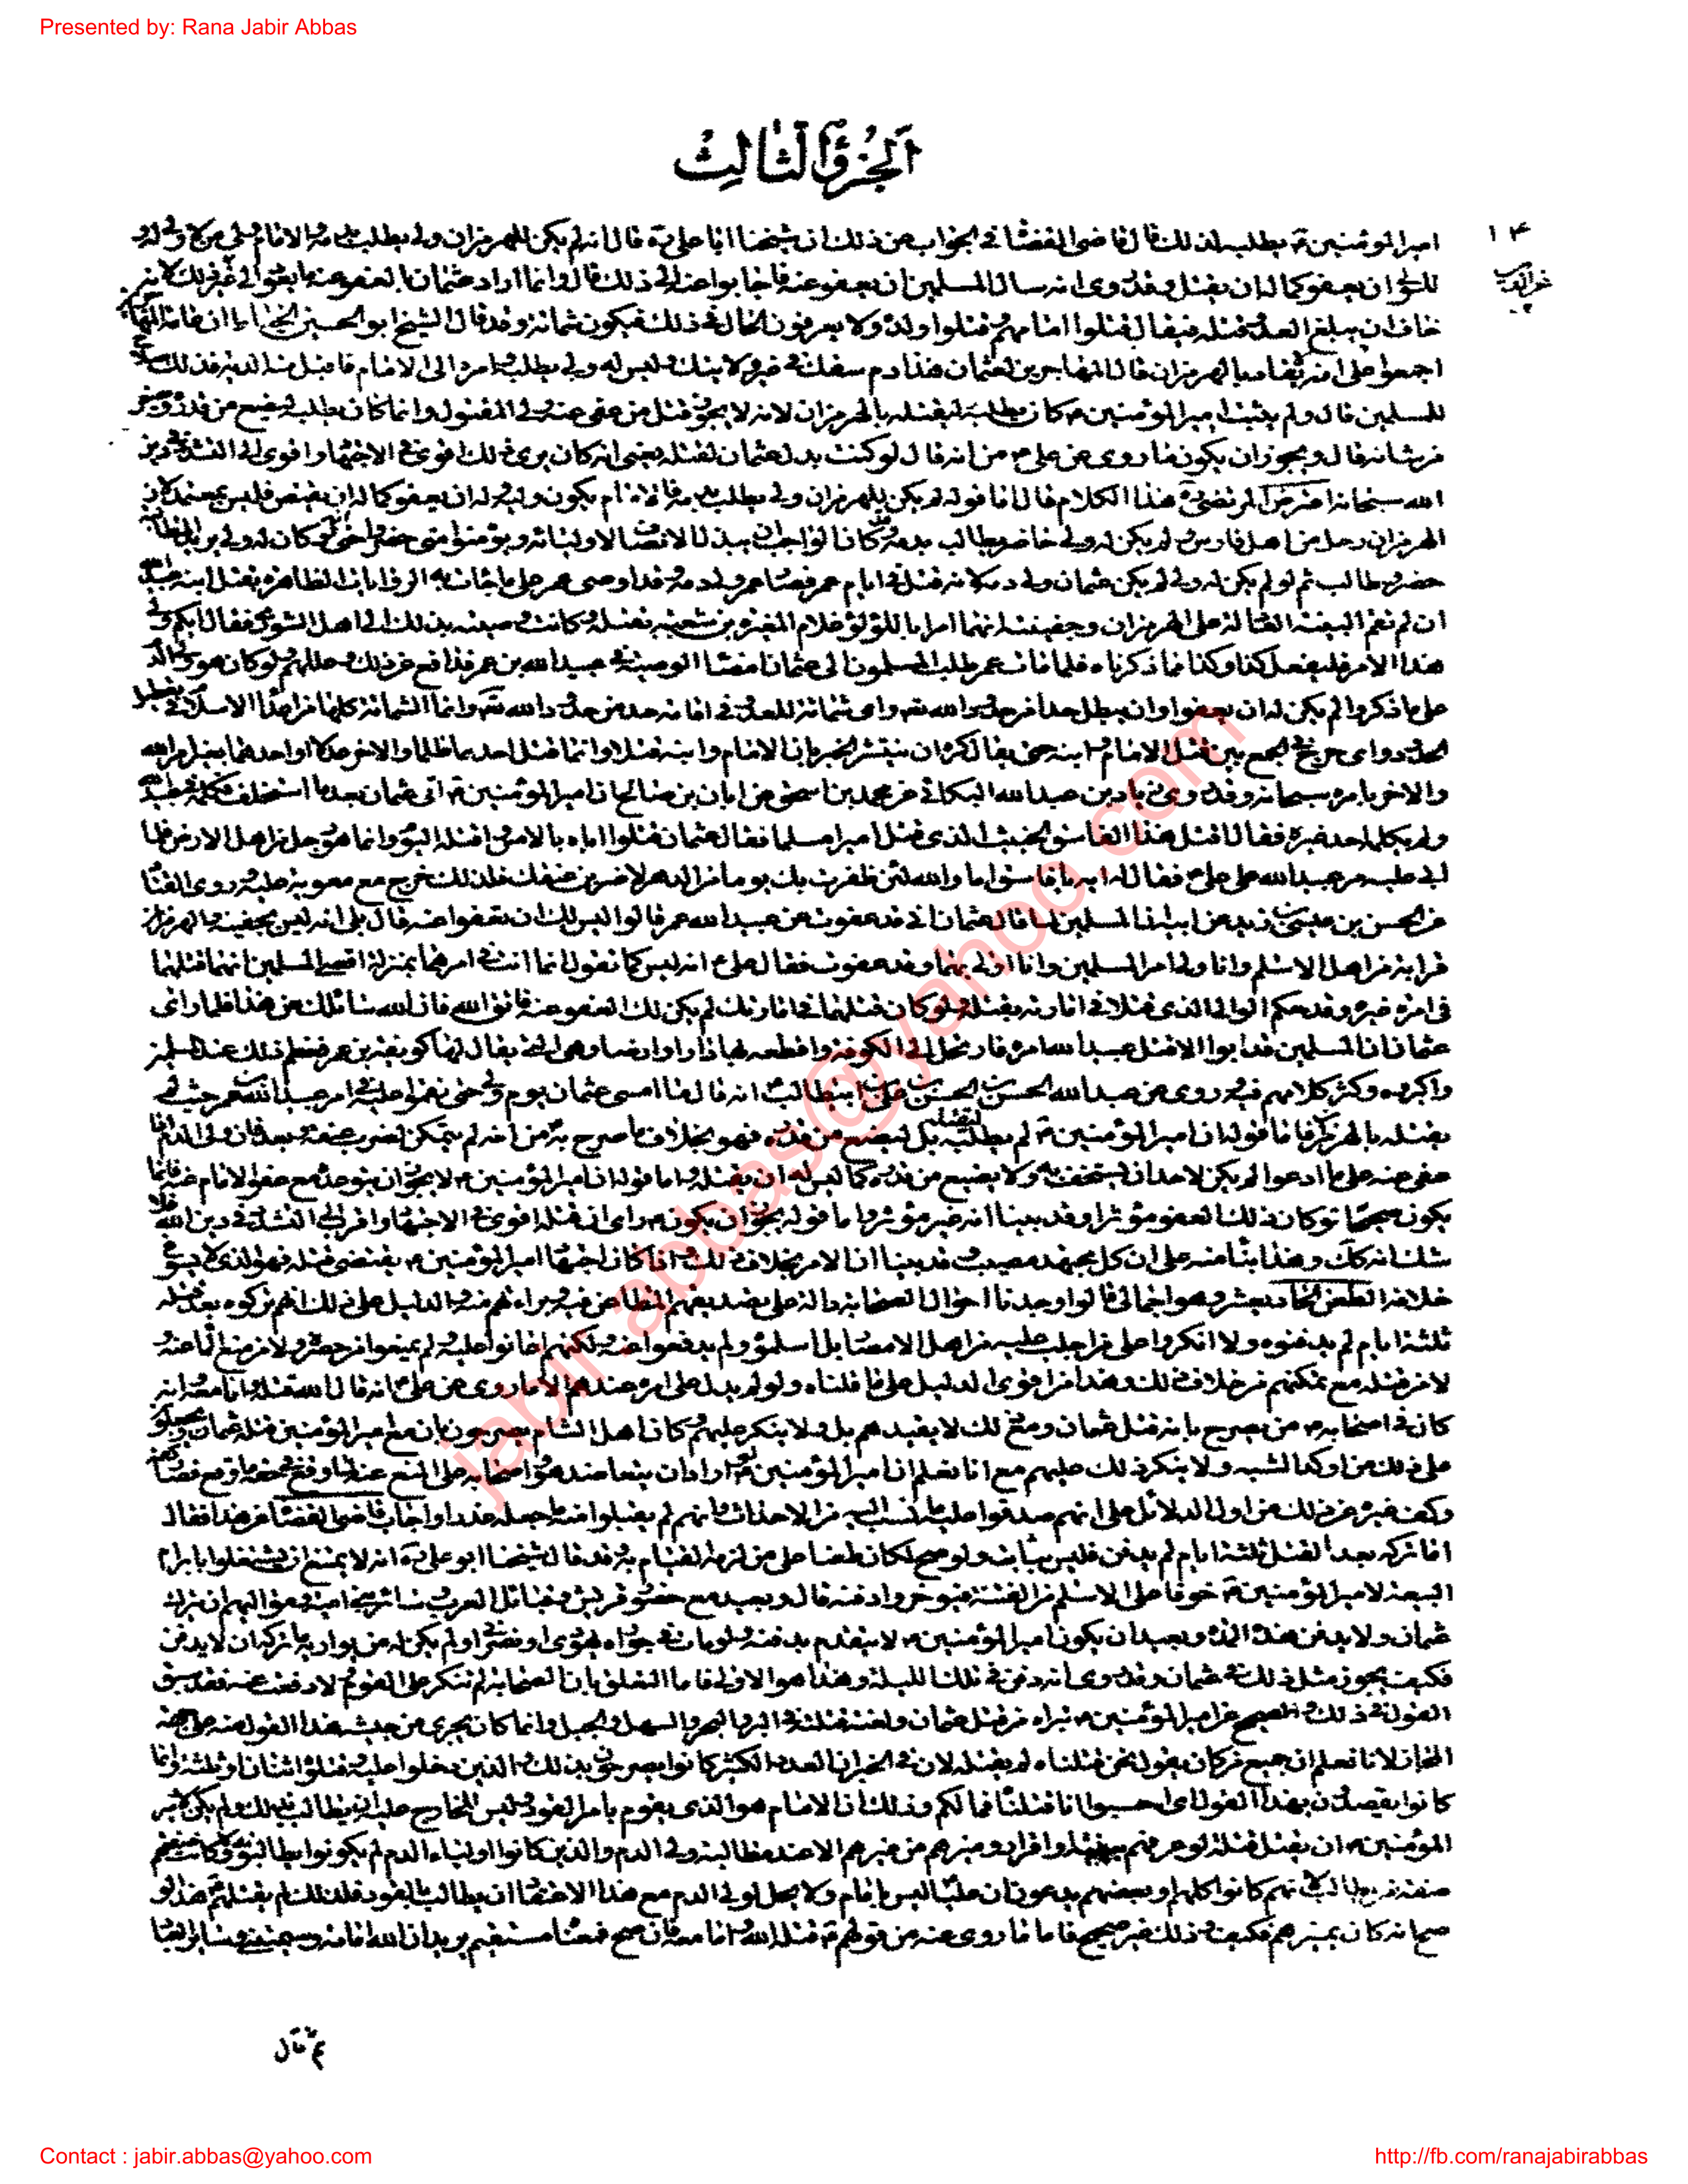 Presented by: Rana Jabir Abbas
الجزؤ الثالث
١٤
امير المؤمنين يطلبه لذلك قال قاضى القضاة فى الجواب عن ذلك ان شيخنا ابا على ره قال انه لم يكن للهرمزان ولى يطلب بدمه والامام ولى من لا ولى له و
للولى ان يعفو كما له ان يقتل وقد روى انه سال المسلمين ان يعفو عنه فاجابوا عنه الى ذلك قال وانما اراد عثمان بالعفو عنه ما يعود الى
خاف ان يبلغ العدو قتله فيقال قتلوا امامهم وقتلوا ولده ولا يعرفون الحال فى ذلك فيكون شماتة وقد قال الشيخ ابو الحسين الخياط ان عامة المهاجرين
اجمعوا على انه يقاد بالهرمزان قال المهاجرين لعثمان هذا دم سفك فى غير ولايتك وليس له ولى يطلب به وامره الى الامام فاقبل منه الدية فذلك
للمسلمين قال ولم يثبت ان امير المؤمنين كان يطلبه ليقتله بالهرمزان لانه لا يجوز قتل من عفى عنه ولى المقتول وانما كان يطلبه ليضع من قدره ويصغر
من شانه قال ويجوز ان يكون ما روى عن على من انه قال لو كنت بدل عثمان لقتلته يعنى انه كان يرى ذلك اقوى فى الاجتهاد واقوى الى التشدد فى دين
الله سبحانه اعترض المرتضى ره هذا الكلام قال اما قوله لم يكن للهرمزان ولى يطلب بدمه فالامام يكون وليه وله ان يعفو كما له ان يقتص فليس بمعتمد لان
الهرمزان رجل من اهل فارس ولم يكن له ولى حاضر يطالب بدمه وقد كان الواجب ان يبذل الانصاف لاوليائه ويؤمنوا متى حضروا حتى ان كان له ولى يريد المطالبة
حضر وطالب ثم لو لم يكن له ولى لم يكن عثمان ولى دمه لانه قتل فى ايام عمر فصار عمر ولى دمه وقد اوصى عمر على ما جاءت به الروايات الظاهرة بقتل ابنه عبيد الله
ان لم تقم البينة العادلة على الهرمزان وجفينة انهما امرا ابا لؤلؤة غلام المغيرة بن شعبة بقتله وكانت وصيته بذلك الى اهل الشورى فقال ايكم ولى
هذا الامر فليفعل كذا وكذا مما ذكرناه فلما مات عمر طلب المسلمون الى عثمان امضاء الوصية فى عبيد الله بن عمر فدافع عن ذلك وعللهم ولو كان هو ولى الدم
على ما ذكروا لم يكن له ان يعفوا وان يبطل حدا من حدود الله تعالى واى شماتة للعدو فى اقامة حد من حدود الله تعالى وانما الشماتة كلها من اعداء الاسلام فى تعطيل
الحدود واى حرج فى الجمع بين قتل الامام وابنه حتى يقال كره ان ينتشر الخبر بان الامام وابنه قتلا وانما قتل احدهما ظلما والاخر عدلا او احدهما بغير امر الله
والاخر بامره سبحانه وقد روى زياد بن عبد الله البكائى عن محمد بن اسحق عن ابان بن صالح ان امير المؤمنين اتى عثمان بعد ما استخلف فكلمه فى عبيد الله
ولم يكلمه احد غيره فقال اقتل هذا الفاسق الخبيث الذى قتل اميرا مسلما فقال عثمان قتلوا اباه بالامس واقتله اليوم وانما هو رجل من اهل الارض فلما
ابى عليه مر عبيد الله على على فقال له ايه يا فاسق اما والله لئن ظفرت بك يوما من الدهر لاضربن عنقك فلذلك خرج مع معوية عليه وروى القناد
عن الحسن بن عيسى بن زيد عن ابيه ان المسلمين لما قال عثمان انى قد عفوت عن عبيد الله بن عمر قالوا ليس لك ان تعفوا عنه قال بلى انه ليس لجفينة والهرمزان
قرابة من اهل الاسلام وانا ولى امر المسلمين وانا اولى بهما وقد عفوت فقال على انه ليس كما تقول انما انت فى امرهما بمنزلة اقصى المسلمين انهما قتلهما
فى امرة غيرك وقد حكم الوالى الذى قتلا فى امارته بقتله ولو كان قتلهما فى امارتك لم يكن لك العفو عنه فاتق الله فان الله سائلك عن هذا فلما راى
عثمان ان المسلمين قد ابوا الا قتل عبيد الله امره فارتحل الى الكوفة واقطعه بها دارا وارضا وهى التى يقال لها كويفة بن عمر فعظم ذلك عند المسلمين
واكبروه وكثر كلامهم فيه وروى عن عبد الله الحسن بن الحسن بن على بن ابيطالب انه قال ما امسى عثمان يوم ولى حتى نقموا عليه فى امر عبيد الله بن عمر حيث لم
يقتله بالهرمزان فاما قوله ان امير المؤمنين لم يطلبه ليقتله بل ليضع من قدره فهو بخلاف ما صرح به من انه لم يتمكن لضرب عنقه وبعد فان ولى الدم اذا
عفى عنه على ما ادعوا لم يكن لاحد ان يستخف به ولا يضع من قدره كما ليس له ان يقتله واما قوله ان امير المؤمنين لا يجوز ان يتوعده مع عفو الامام عنه فانما
يكون صحيحا لو كان ذلك العفو مؤثرا وقد بينا انه غير مؤثر واما قوله يجوز ان يكون راى ان قتله اقوى فى الاجتهاد واقرب الى التشدد فى دين الله فلا
شك انه كك وهذا بناء منه على ان كل مجتهد مصيب وقد بينا ان الامر بخلاف ذلك واذا كان اجتهاد امير المؤمنين يقتضى قتله فهو الذى لا يسوغ
خلافه الطعن الحادى عشر وهو اجمالى قالوا وجدنا احوال الصحابة دالة على تصديقهم المطاعن فيه وبراءتهم منه والدليل على ذلك انهم تركوه بعد قتله
ثلثة ايام لم يدفنوه ولا انكروا على من اجلب عليه من اهل الامصار بل اسلموه ولم يدفعوا عنه ولكنهم اعانوا عليه ولم يمنعوا من حصره ولا من منع الماء عنه و
لا من قتله مع تمكنهم من خلاف ذلك وهذا من اقوى الدليل على ما قلناه ولو لم يدل على امره عندهم الا ما روى عن على انه قال الله قتله وانا معه وانه
كان فى اصحابه من يصرح بانه قتل عثمان ومع ذلك لا يقيدهم بل ولا ينكر عليهم وكان اهل الشام يصرحون بان مع امير المؤمنين قتلة عثمان ويجعلون
على ذلك من اوكد الشبه ولا ينكر ذلك عليهم مع انا نعلم ان امير المؤمنين لو اراد ان يتعاضد هو واصحابه على المنع عنه لما وقع فى حقه ما وقع فصار كفه
وكف غيره عن ذلك من اول الدلائل على انهم صدقوا عليه ما نسب اليه من الاحداث وانهم لم يقبلوا منه ما جعله عذرا واجاب قاضى القضاة عن هذا فقال
اما تركه بعد القتل ثلثة ايام لم يدفن فليس بثابت ولو صح لكان طعنا على من لزمه القيام به وقد قال شيخنا ابو على ره انه لا يمتنع ان يشتغلوا بابرام
البيعة لامير المؤمنين خوفا على الاسلام من الفتنة فيؤخروا دفنه قال وبعيد مع حضور قريش وقبائل العرب وسائر بنى امية ومواليهم ان يترك
عثمان ولا يدفن هذه المدة وبعيد ان يكون امير المؤمنين لا يتقدم بدفنه ولو مات فى جواره يهودى او نصرانى ولم يكن له من يواريه ما تركه ان لا يدفن
فكيف يجوز مثل ذلك فى عثمان وقد روى انه دفن فى تلك الليلة وهذا هو الاولى فاما التعلق بان الصحابة لم تنكر على القوم ولا دفعت عنه فقد سبق
القول فى ذلك والصحيح عن امير المؤمنين تبراه من قتل عثمان ولعنه قتلته فى البر والبحر والسهل والجبل وانما كان يجرى من جيشه هذا القول منه على جهة
المجاز لانا نعلم ان جميع من كان يقول نحن قتلناه لم يقتله لان فى الخبر ان العدد الكثير كانوا يصرحون بذلك والذين دخلوا عليه وقتلوه اثنان او ثلثة وانما
كانوا يقصدون بهذا القول اى احسبوا انا قتلناه فما لكم وذلك ان الامام هو الذى يقوم بامر القود وليس للخارج عليه ان يطالب بذلك ولم يكن لامير
المؤمنين ان يقتل قتلته لو عرفهم ببينة او اقرار وميزهم من غيرهم الا عند مطالبة ولى الدم والذين كانوا اولياء الدم لم يكونوا يطالبونه ولا كانت صفتهم
صفة من يطالب لانهم كانوا كلهم او بعضهم يدعون ان عليا ليس بامام ولا يحل لولى الدم مع هذا الاعتقاد ان يطالب بالقود فلذلك لم يقتلهم هذا لو
صح انه كان يميزهم فكيف وذلك غير صحيح فاما ما روى عنه من قوله قتله الله وانا معه فان صح فمعناه مستقيم يريد ان الله اماته وسيميتنى وسائر العباد
ثم قال
jabir.abbas@yahoo.com
Contact : jabir.abbas@yahoo.com
http://fb.com/ranajabirabbas